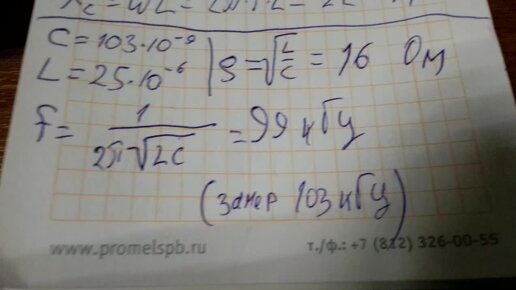 X_C = ωL = 2π·f·L =
C = 103·10⁻⁹
L = 25·10⁻⁶
ρ = √(L/C) = 16 Ом
f = 1/(2π√LC) = 99 кГц
(замер 103 кГц)
www.promelspb.ru
т./ф.: +7 (812) 326-00-55